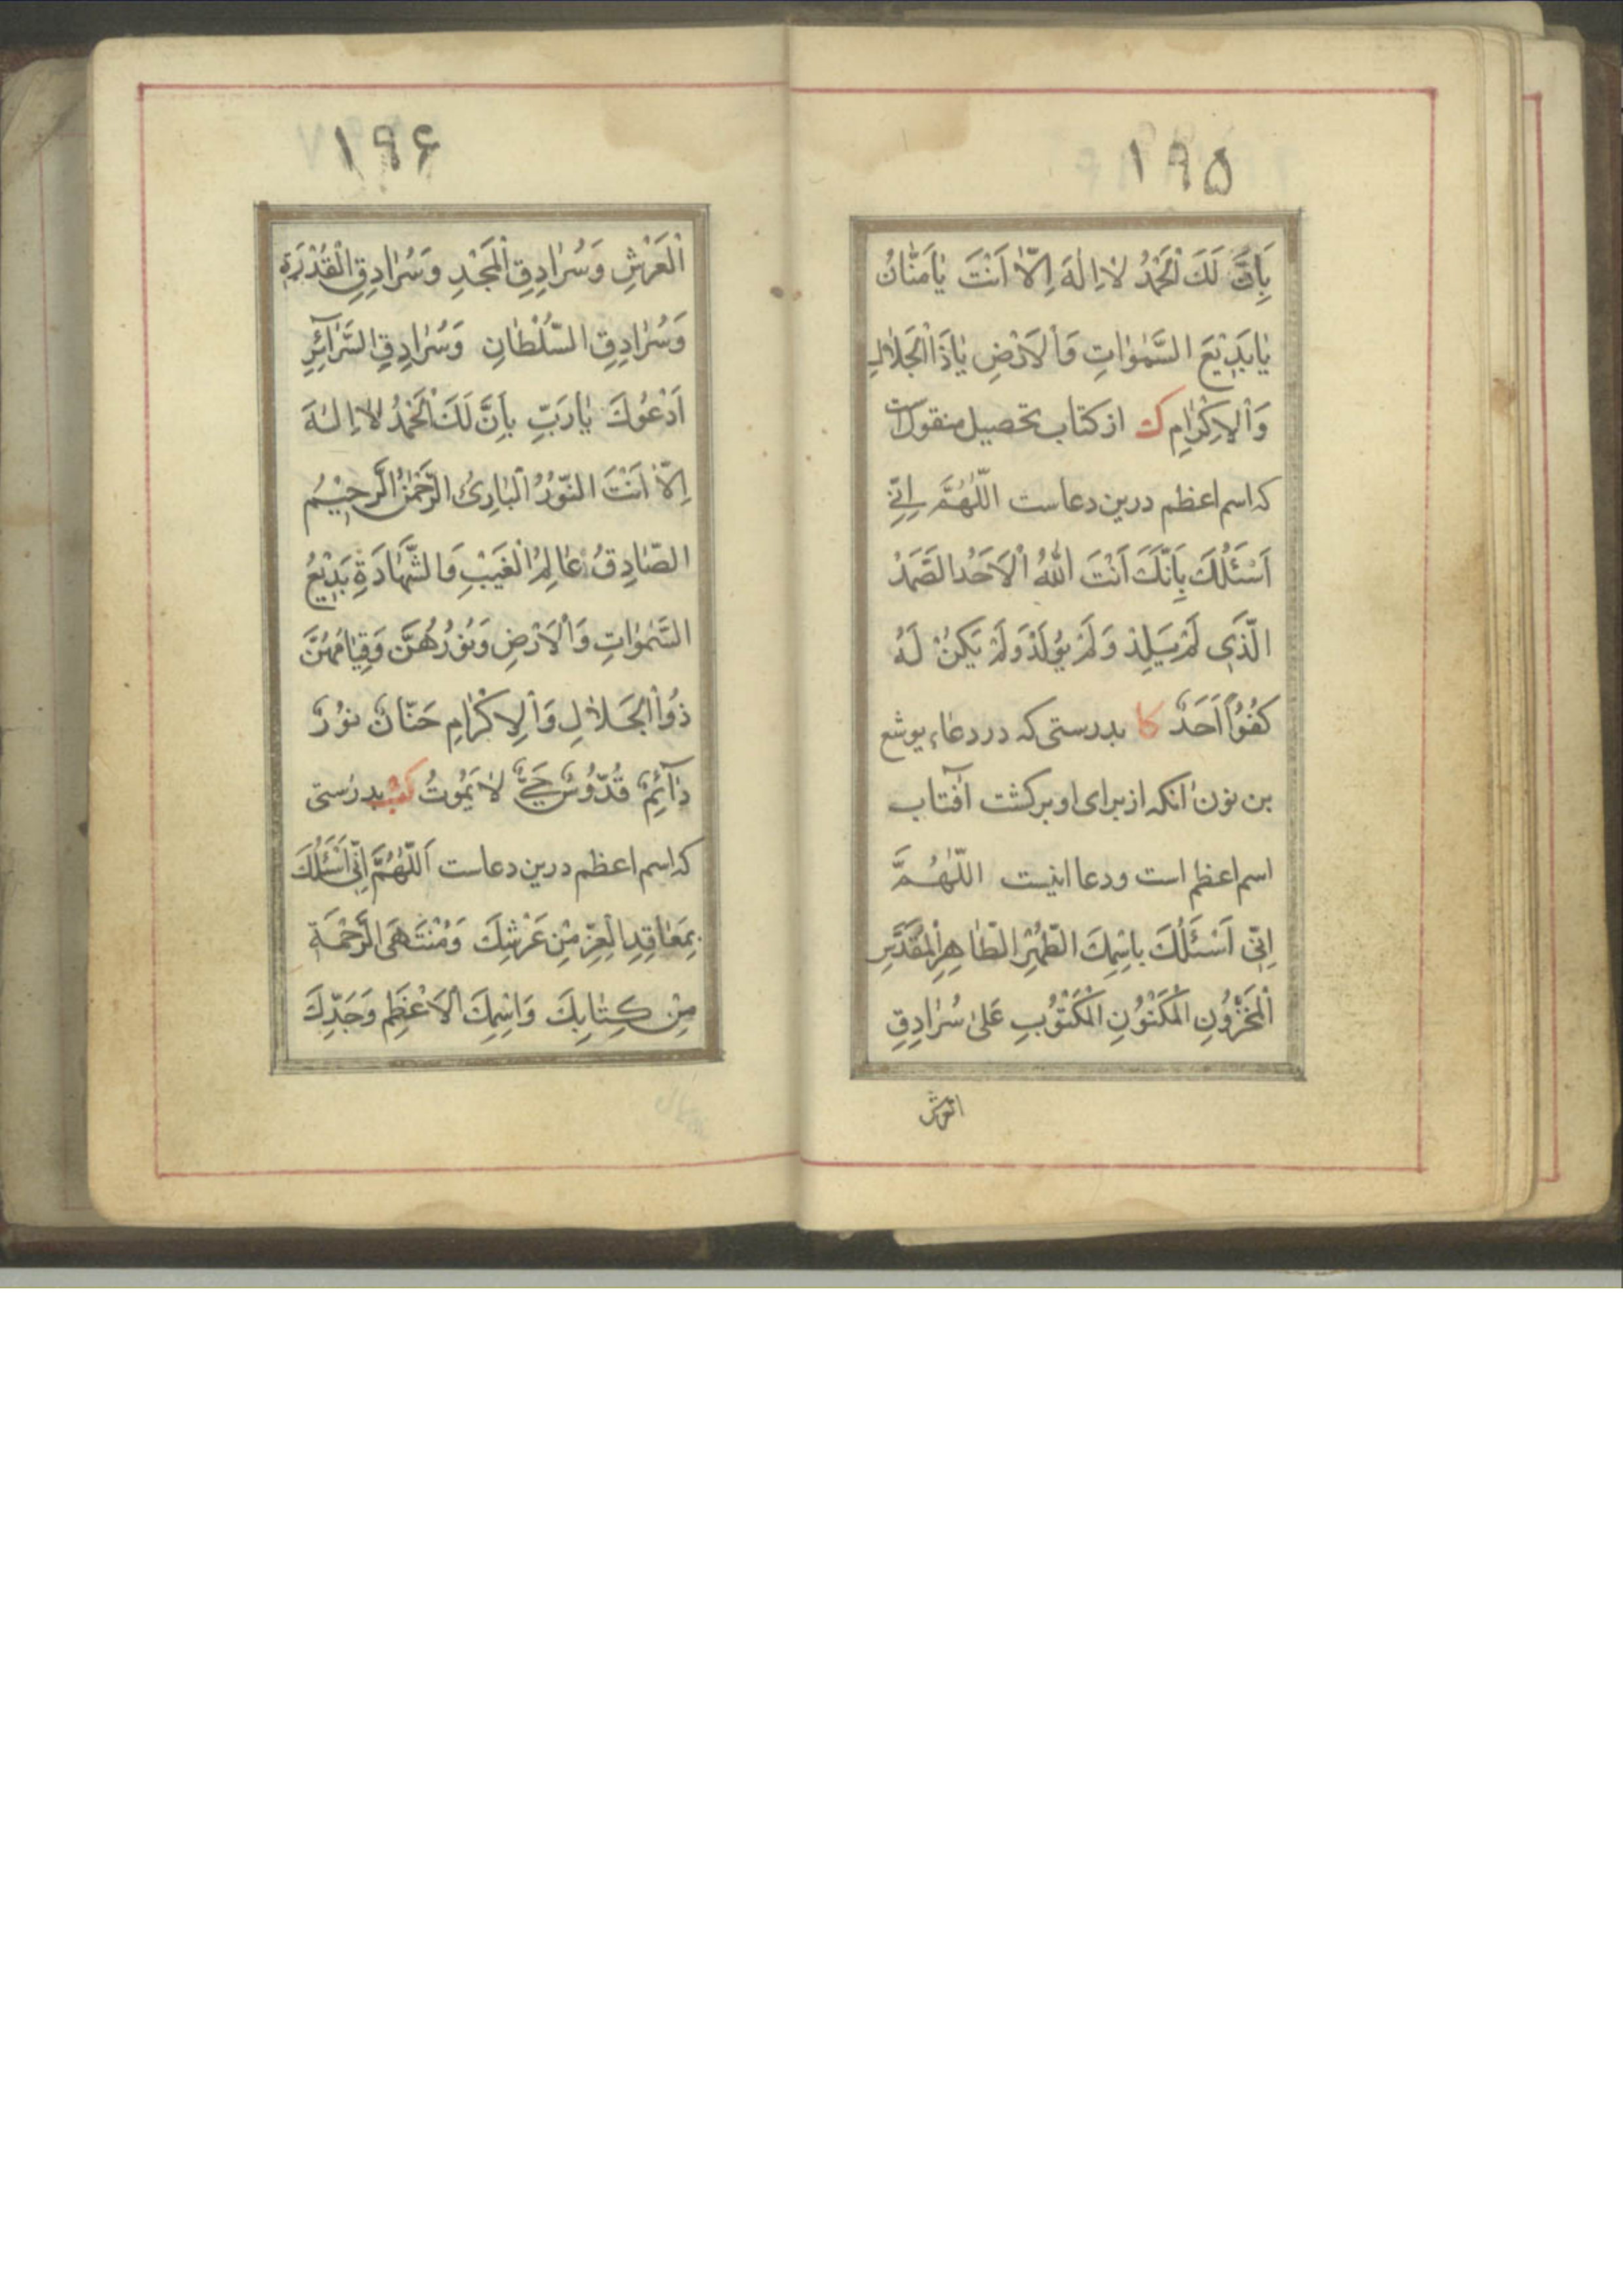 ۱۹۵
بِاَنَّ لَكَ الْحَمْدُ لاٰ اِلٰهَ اِلّاٰ اَنْتَ يٰا مَنّٰانُ
يٰا بَدِيْعَ السَّمٰوٰاتِ وَالْاَرْضِ يٰا ذَا الْجَلاٰلِ
وَالْاِكْرٰامِ ك از كتاب تحصيل منقول است
كه اسم اعظم درين دعاست اللّٰهُمَّ اِنِّي
اَسْئَلُكَ بِاَنَّكَ اَنْتَ اللّٰهُ الْاَحَدُ الصَّمَدُ
الَّذِي لَمْ يَلِدْ وَلَمْ يُوْلَدْ وَلَمْ يَكُنْ لَهُ
كُفُوًا اَحَدٌ كا بدرستى كه در دعاء يوشع
بن نون انكه از براى او بركشت آفتاب
اسم اعظم است و دعا اينست اللّٰهُمَّ
اِنّى اَسْئَلُكَ بِاسْمِكَ الطُّهْرِ الطّٰاهِرِ الْمُقَدَّسِ
الْمَخْزُوْنِ الْمَكْنُوْنِ الْمَكْتُوْبِ عَلىٰ سُرٰادِقِ
۱۹۶
الْعَرْشِ وَسُرٰادِقِ الْمَجْدِ وَسُرٰادِقِ الْقُدْرَةِ
وَسُرٰادِقِ السُّلْطٰانِ وَسُرٰادِقِ السَّرٰآئِرِ
اَدْعُوْكَ يٰا رَبِّ بِاَنَّ لَكَ الْحَمْدُ لاٰ اِلٰهَ
اِلّاٰ اَنْتَ النُّوْرُ الْبٰارِئُ الرَّحْمٰنُ الرَّحِيْمُ
الصّٰادِقُ عٰالِمُ الْغَيْبِ وَالشَّهٰادَةِ بَدِيْعُ
السَّمٰوٰاتِ وَالْاَرْضِ وَنُوْرُهُنَّ وَقِيٰامُهُنَّ
ذُو الْجَلاٰلِ وَالْاِكْرٰامِ حَنّٰانٌ نُوْرٌ
دٰآئِمٌ قُدُّوْسٌ حَىٌّ لاٰ يَمُوْتُ كب بدرستى
كه اسم اعظم درين دعاست اَللّٰهُمَّ اِنّى اَسْئَلُكَ
بِمَعٰاقِدِ الْعِزِّ مِنْ عَرْشِكَ وَمُنْتَهَى الرَّحْمَةِ
مِنْ كِتٰابِكَ وَاسْمِكَ الْاَعْظَمِ وَجَدِّكَ